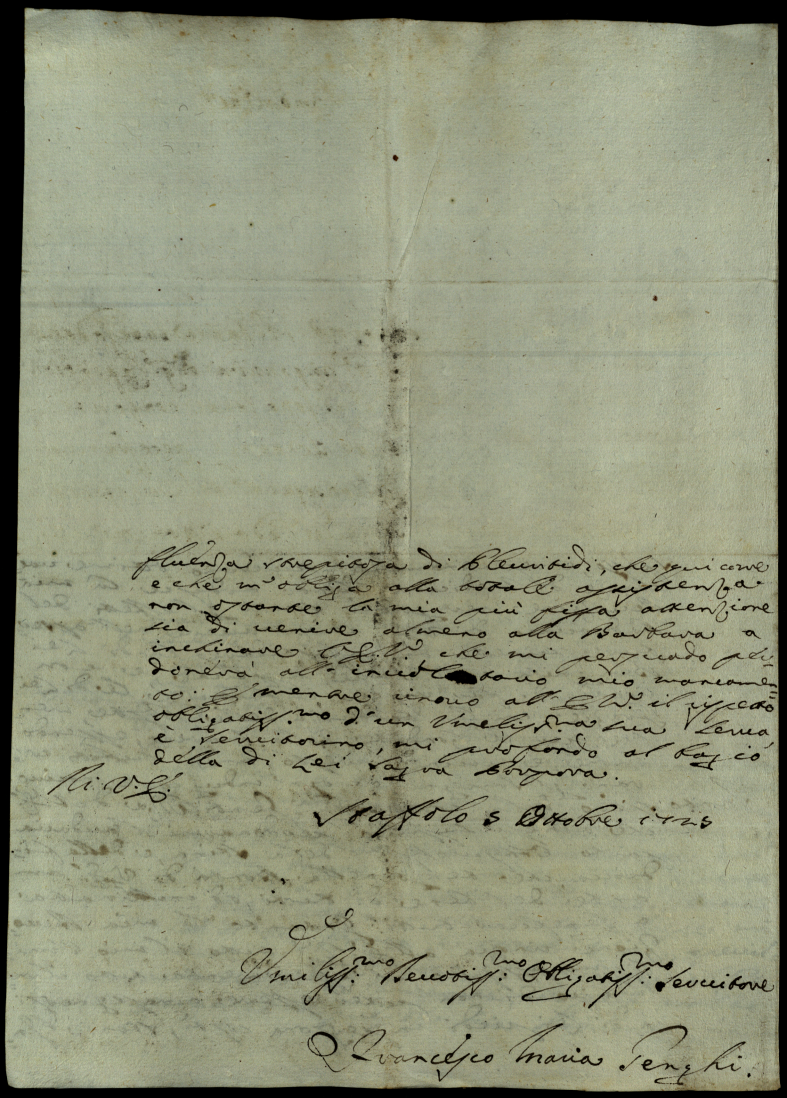 fluenza strepitosa di Pleuritidi, che qui corre
e che m'obliga alla totale assistenza
non ostante la mia più fissa attenzione
sia di venire almeno alla Barbara a
inchinare V.E. che mi persuado per-
donerà all' mio mancamen=
to. E mentre umo all' E.V. il rispetto
obligatiss.mo d'un Umiliss.ma sua serva
è servitorino, mi profondo al bagio
della di Lei Sagra Porpora.
Di V.E.
Staffolo 5 Ottobre 1725
Umiliss.mo Devotiss.mo Obligatiss.mo Servitore
Francesco Maria Tenghi.